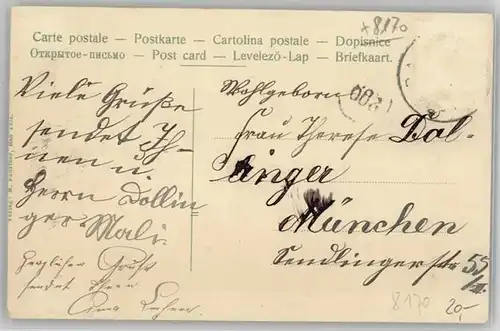 × 8170
Carte postale — Postkarte — Cartolina postale — Dopisnice
Открытое-письмо — Post card — Levelező-Lap — Briefkaart.
Viele Grüße
sendet Ih-
nen u.
Herrn Dollin
ger Mali.
Herzlichen Gruß
sendet Ihnen
Wohlgeborn
Frau Therese Dol-
linger
München
Sendlingerstr 55
8170
20,-